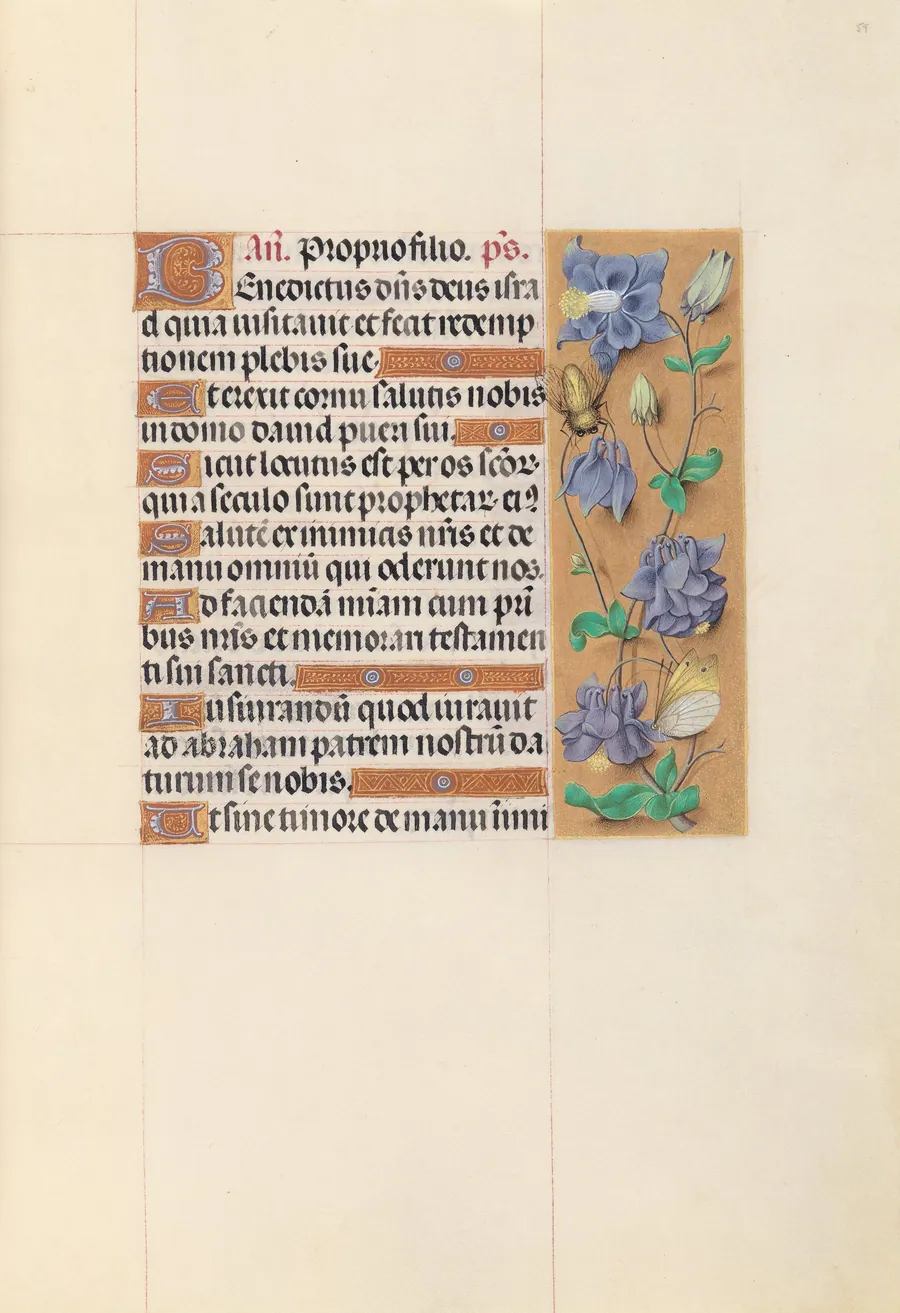 59
An̄. Proprio filio. ps̄.
Benedictus dn̄s deus isra
el quia uisitauit et fecit redemp
tionem plebis sue.
Et erexit cornu salutis nobis
in domo dauid pueri sui.
Sicut locutus est per os scōꝝ
qui a seculo sunt prophetaꝝ eiꝰ
Salutē ex inimicis nr̄is et de
manu omniū qui oderunt nos.
Ad faciendā mīam cum prī
bus nr̄is et memorari testamen
ti sui sancti.
Iusiurandū quod iurauit
ad abraham patrem nostrū da
turum se nobis.
Ut sine timore de manu īimi